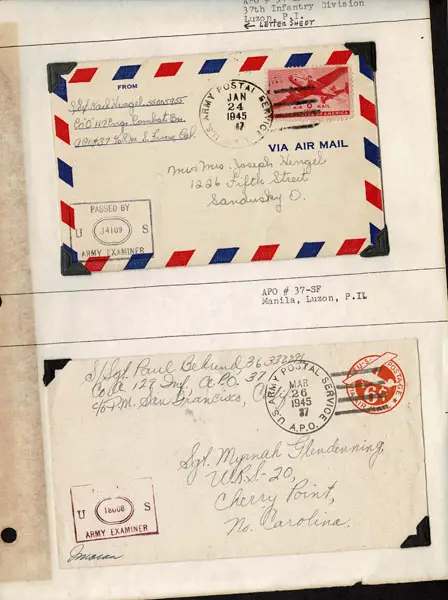 APO #
37th Infantry Division
Luzon, P.I.
← LETTER SHEET
FROM
Co "C" 117 Engr. Combat Bn.
APO #37 % P.M. S. Fran. Cal.
U.S. ARMY POSTAL SERVICE
JAN
24
1945
37
AIR MAIL
UNITED STATES OF AMERICA
VIA AIR MAIL
Mr & Mrs. Joseph Hengel
1226 Fifth Street
Sandusky O.
PASSED BY
U 14109 S
ARMY EXAMINER
APO # 37-SF
Manila, Luzon, P.I.
S/Sgt Paul
Co. A 129 Inf. A.P.O. 37
c/o P.M. San Francisco, Calif
U.S. ARMY POSTAL SERVICE
MAR
26
1945
37
A.P.O.
U.S. POSTAGE
6¢
AIR MAIL
Sgt. Myrnah Glendenning,
Cherry Point,
No. Carolina.
U 18008 S
ARMY EXAMINER